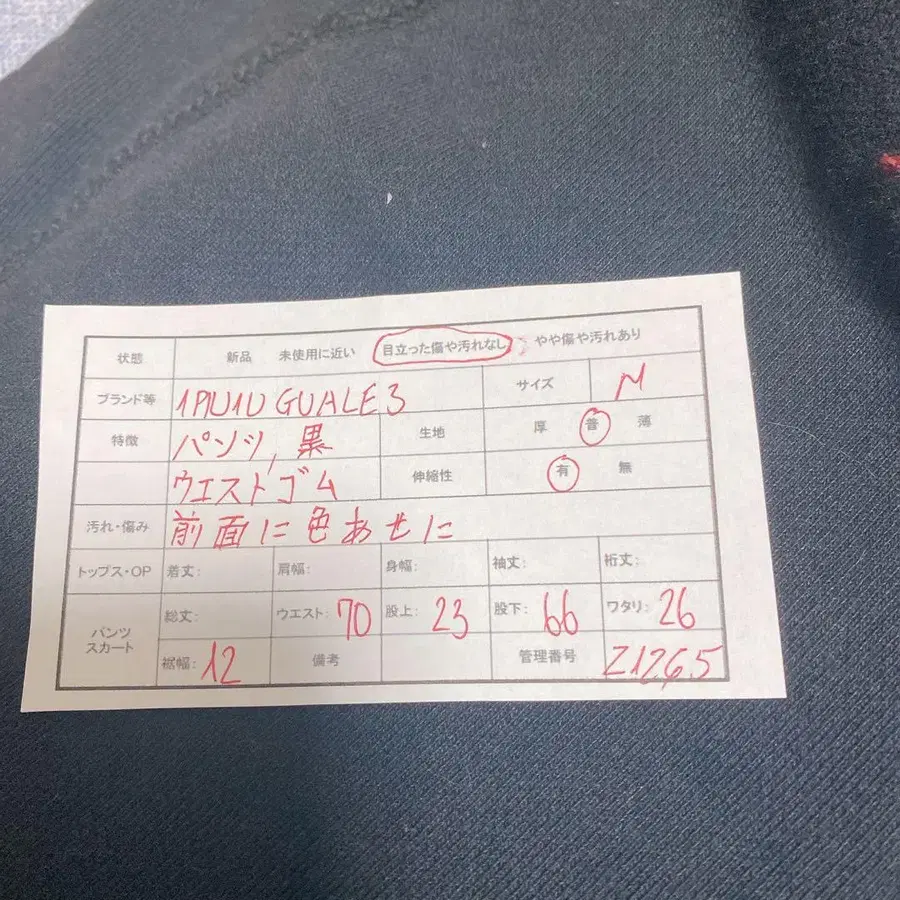 状態 新品 未使用に近い 目立った傷や汚れなし やや傷や汚れあり
ブランド等 1PIU1UGUALE3 サイズ M
特徴 パンツ, 黒 生地 厚 普 薄
ウエストゴム 伸縮性 有 無
汚れ・傷み 前面に色あせに
トップス・OP 着丈: 肩幅: 身幅: 袖丈: 裄丈:
パンツ スカート 総丈: ウエスト: 70 股上: 23 股下: 66 ワタリ: 26
裾幅: 12 備考 管理番号 Z1265